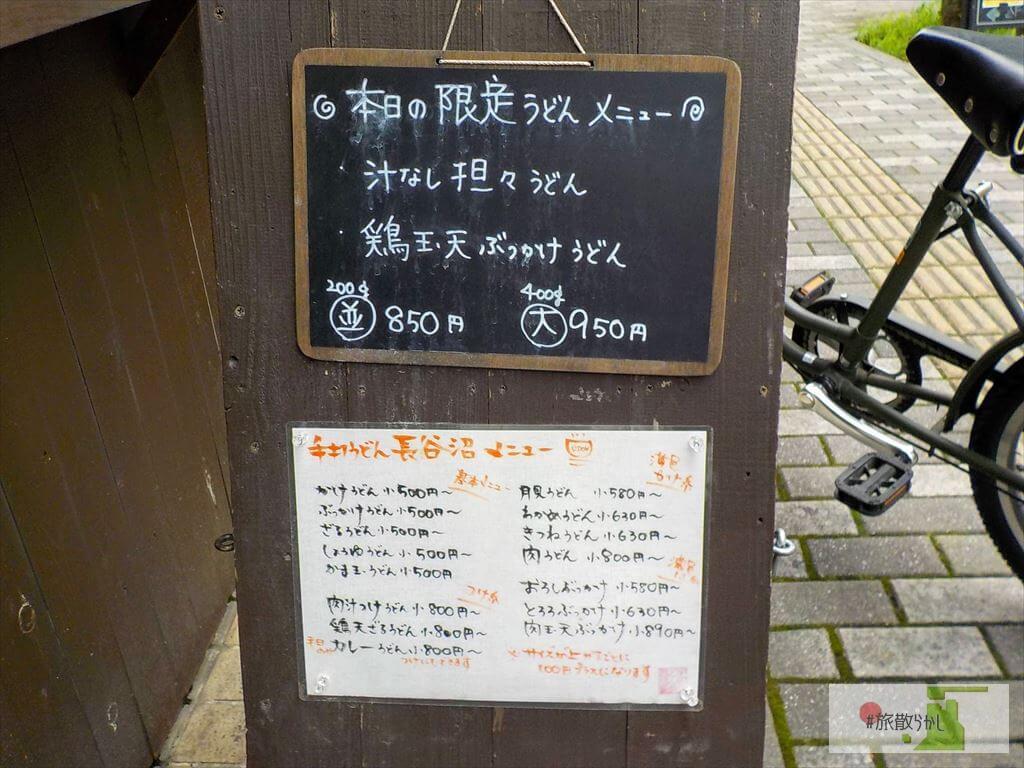 本日の限定うどんメニュー
・汁なし担々うどん
・鶏玉天ぶっかけうどん
200g
並 850円
400g
大 950円
手打うどん 長谷沼 メニュー
基本メニュー
かけうどん 小500円〜
ぶっかけうどん 小500円〜
ざるうどん 小500円〜
しょうゆうどん 小500円〜
かま玉うどん 小500円
つけ系
肉汁つけうどん 小800円〜
鶏天ざるうどん 小800円〜
平日のみ
カレーうどん 小800円〜
つけにもできます
温
かけ系
月見うどん 小580円〜
わかめうどん 小630円〜
きつねうどん 小630円〜
肉うどん 小800円〜
おろしぶっかけ 小580円〜
とろろぶっかけ 小630円〜
肉玉天ぶっかけ 小890円〜
※サイズが上がるごとに
100円プラスになります
#旅散らかし